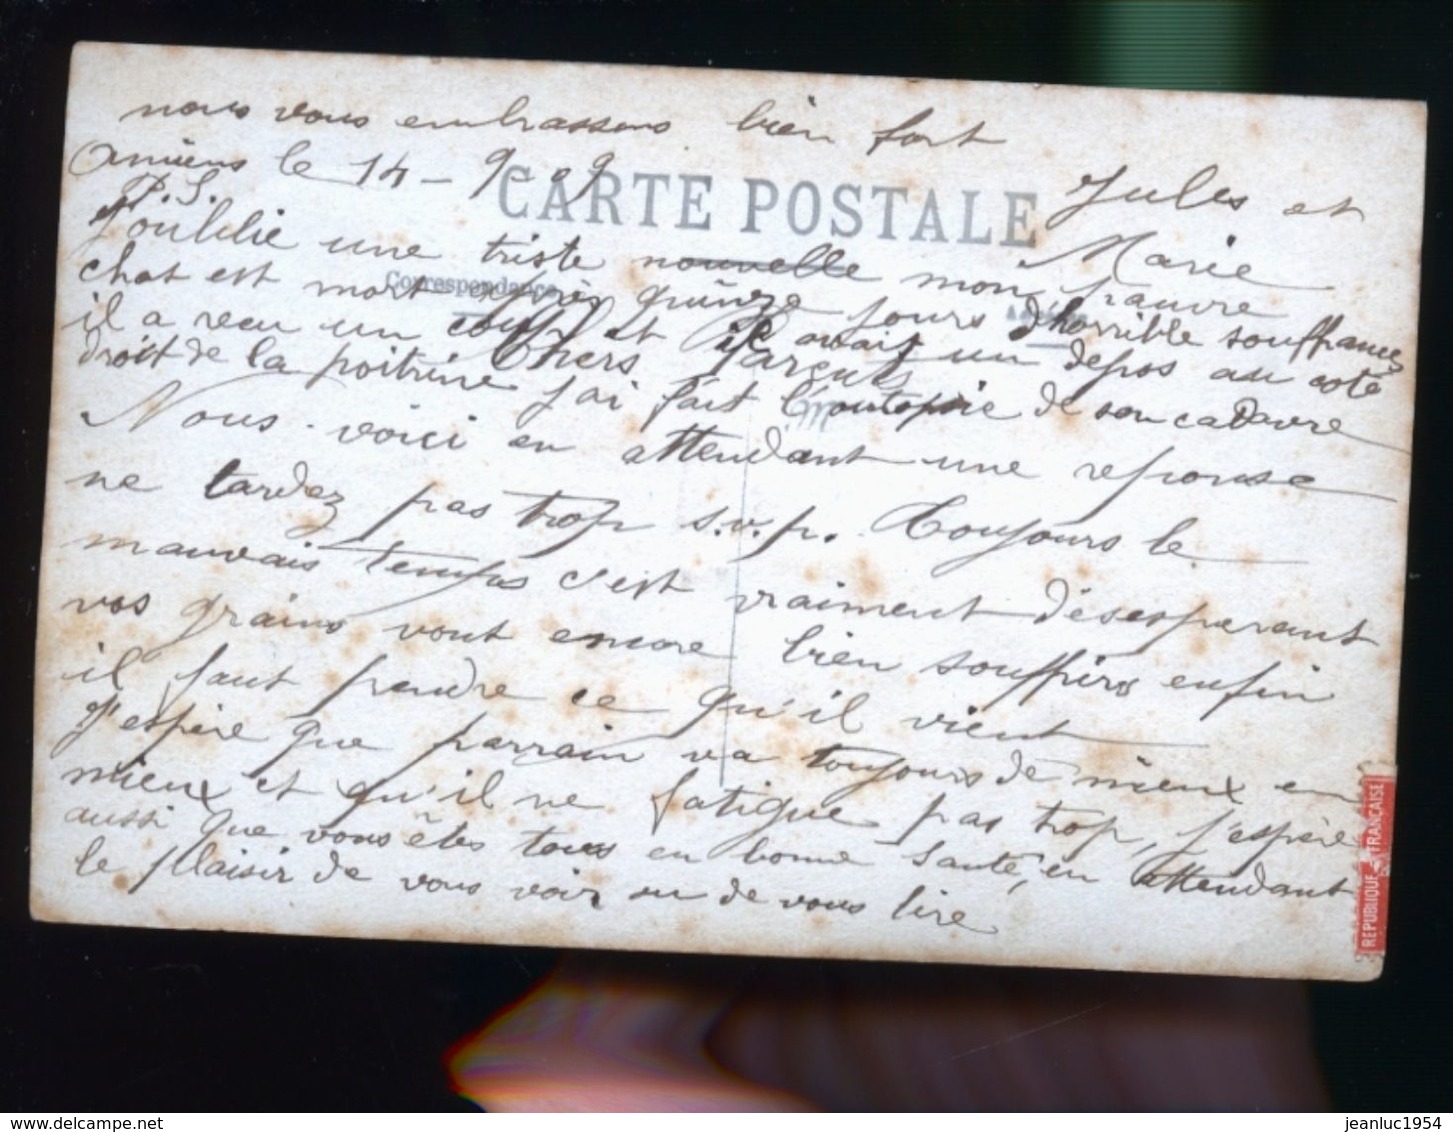 nous vous embrassons bien fort
Jules et
Marie
Amiens le 14 - 9 - 09
CARTE POSTALE
P.S.
J'oublie une triste nouvelle mon pauvre
Correspondance
chat est mort après quinze jours d'horrible souffrances
il a recu un coup et il avait un depos au coté
droit de la poitrine j'ai fait l'autopsie de son cadavre
Chers Parents
Nous voici en attendant une reponse
ne tardez pas trop s.v.p. Toujours le
mauvais temps c'est vraiment désesperant
vos grains vont encore bien souffrir enfin
il faut prendre ce qu'il vient
J'espère que parrain va toujours de mieux en
mieux et qu'il ne fatigue pas trop, j'espère
aussi que vous êtes tous en bonne santé, en attendant
le plaisir de vous voir ou de vous lire
REPUBLIQUE FRANÇAISE
https://www.delcampe.net
jeanluc1954